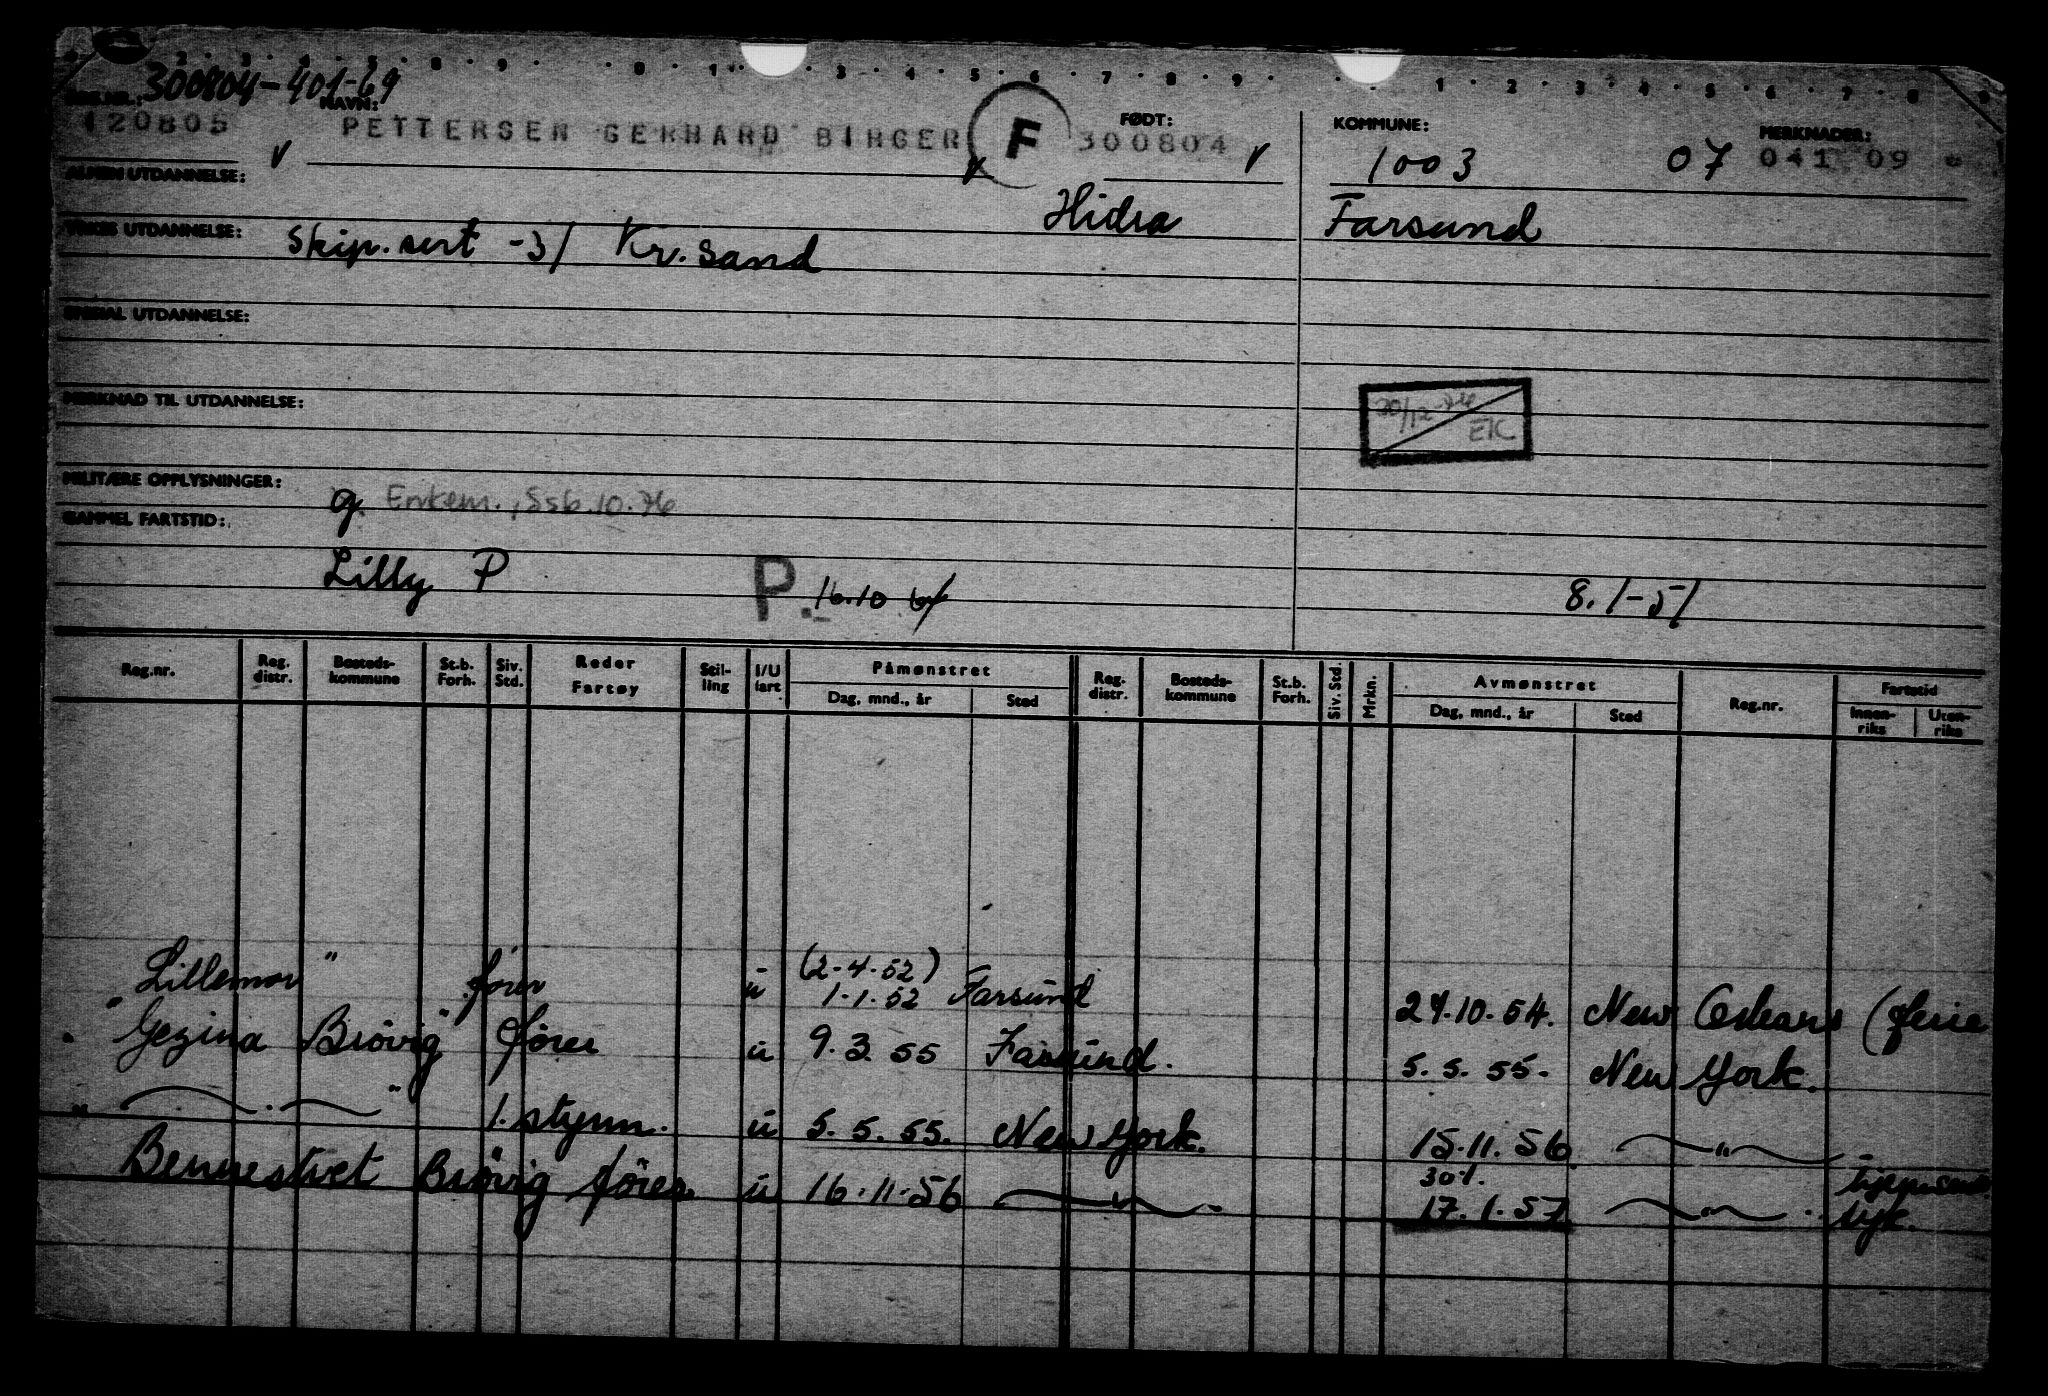 300804-401-69
NAVN: FØDT: KOMMUNE: MERKNADER:
120805 PETTERSEN GERHARD BIRGER F 300804 1003 07 041 09
ALMEN UTDANNELSE: Hidra Farsund
YRKES UTDANNELSE: Skip.sert -31 Kr.sand
SPESIAL UTDANNELSE:
MERKNAD TIL UTDANNELSE:
EK
MILITÆRE OPPLYSNINGER: g. Enkem.,
GAMMEL FARTSTID:
Lilly P P. 16.10 8.1-51
Reg.nr. Reg. distr. Bosteds-kommune St.b. Forh. Siv. Std. Reder Fartøy Stil-ling I/U fart Påmønstret Dag, mnd., år Sted Reg. distr. Bosteds-kommune St.b. Forh. Siv. Std. Mrkn. Avmønstret Dag, mnd., år Sted Reg.nr. Fartstid Innen-riks Uten-riks
(2-4-52)
Lillemor" fører u 1.1.52 Farsund 27.10.54. New Orleans (ferie
"Gezina Brøvig" fører u 9.3.55 Farsund. 5.5.55. New York.
" " 1. styrm. u 5.5.55. New York. 15.11.56 "
Bennestvet Brøvig fører u 16.11.56 " 17.1.57 " syk.